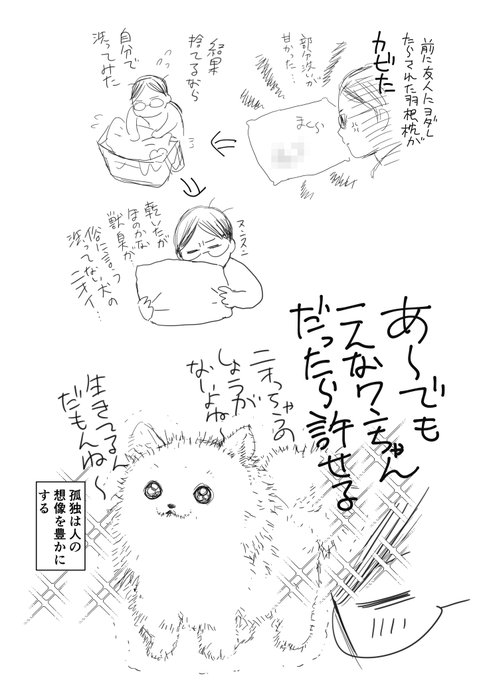 前に友人にヨダレ
たら〜された羽根枕が
カビた
部分洗いが
甘かった…
まくら
結果
捨てるなら
自分で
洗ってみた
スンスン
乾いたが
ほのかな
獣臭が…
俗に言う
洗ってない犬の
ニオイ…
あ〜でも
こんなワンちゃん
だったら許せる
ニオっちゃうの
しょうが
ないよね〜
生きてるん
だもんね〜
孤独は人の
想像を豊かに
する